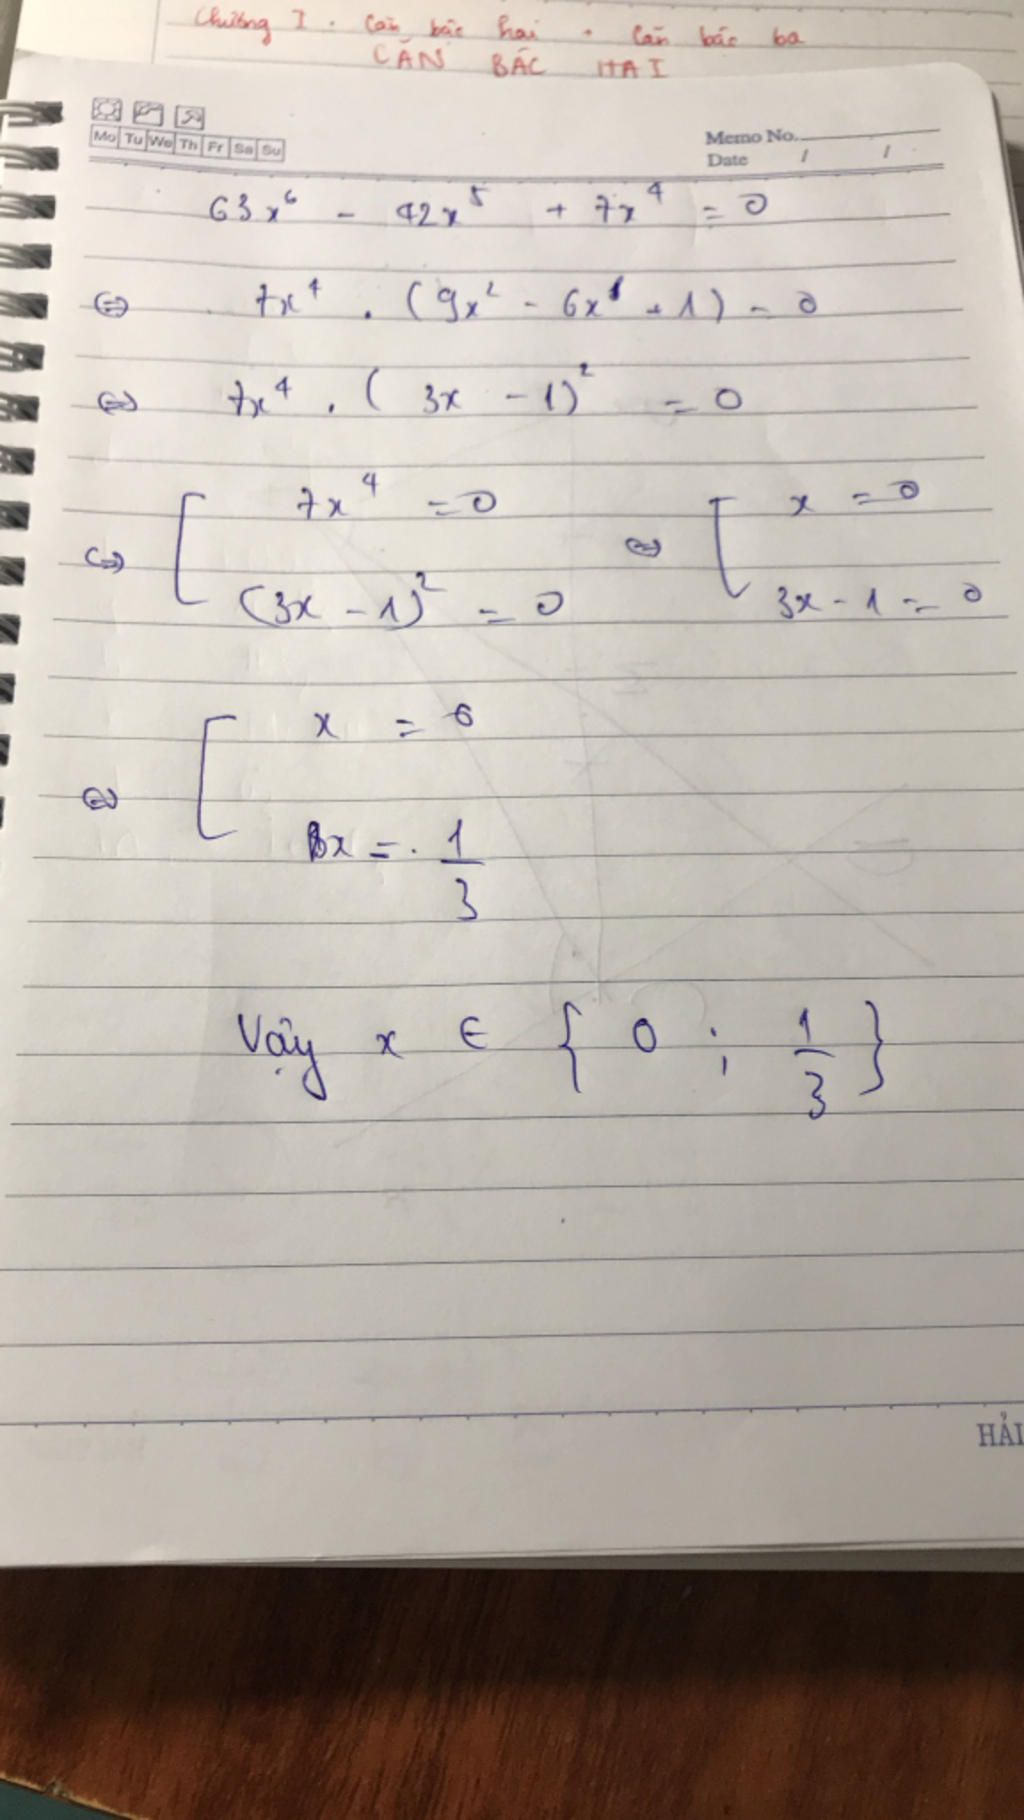 Chương I. Căn bậc hai. Căn bậc ba
CĂN BẬC HAI
Mo Tu We Th Fr Sa Su
Memo No.
Date / /
63x⁶ - 42x⁵ + 7x⁴ = 0
⇔ 7x⁴ . (9x² - 6x¹ + 1) = 0
⇔ 7x⁴ . (3x - 1)² = 0
⇔ [ 7x⁴ = 0 ⇔ [ x = 0
(3x - 1)² = 0 3x - 1 = 0
⇔ [ x = 0
x = 1/3
Vậy x ∈ { 0 ; 1/3 }
HẢI